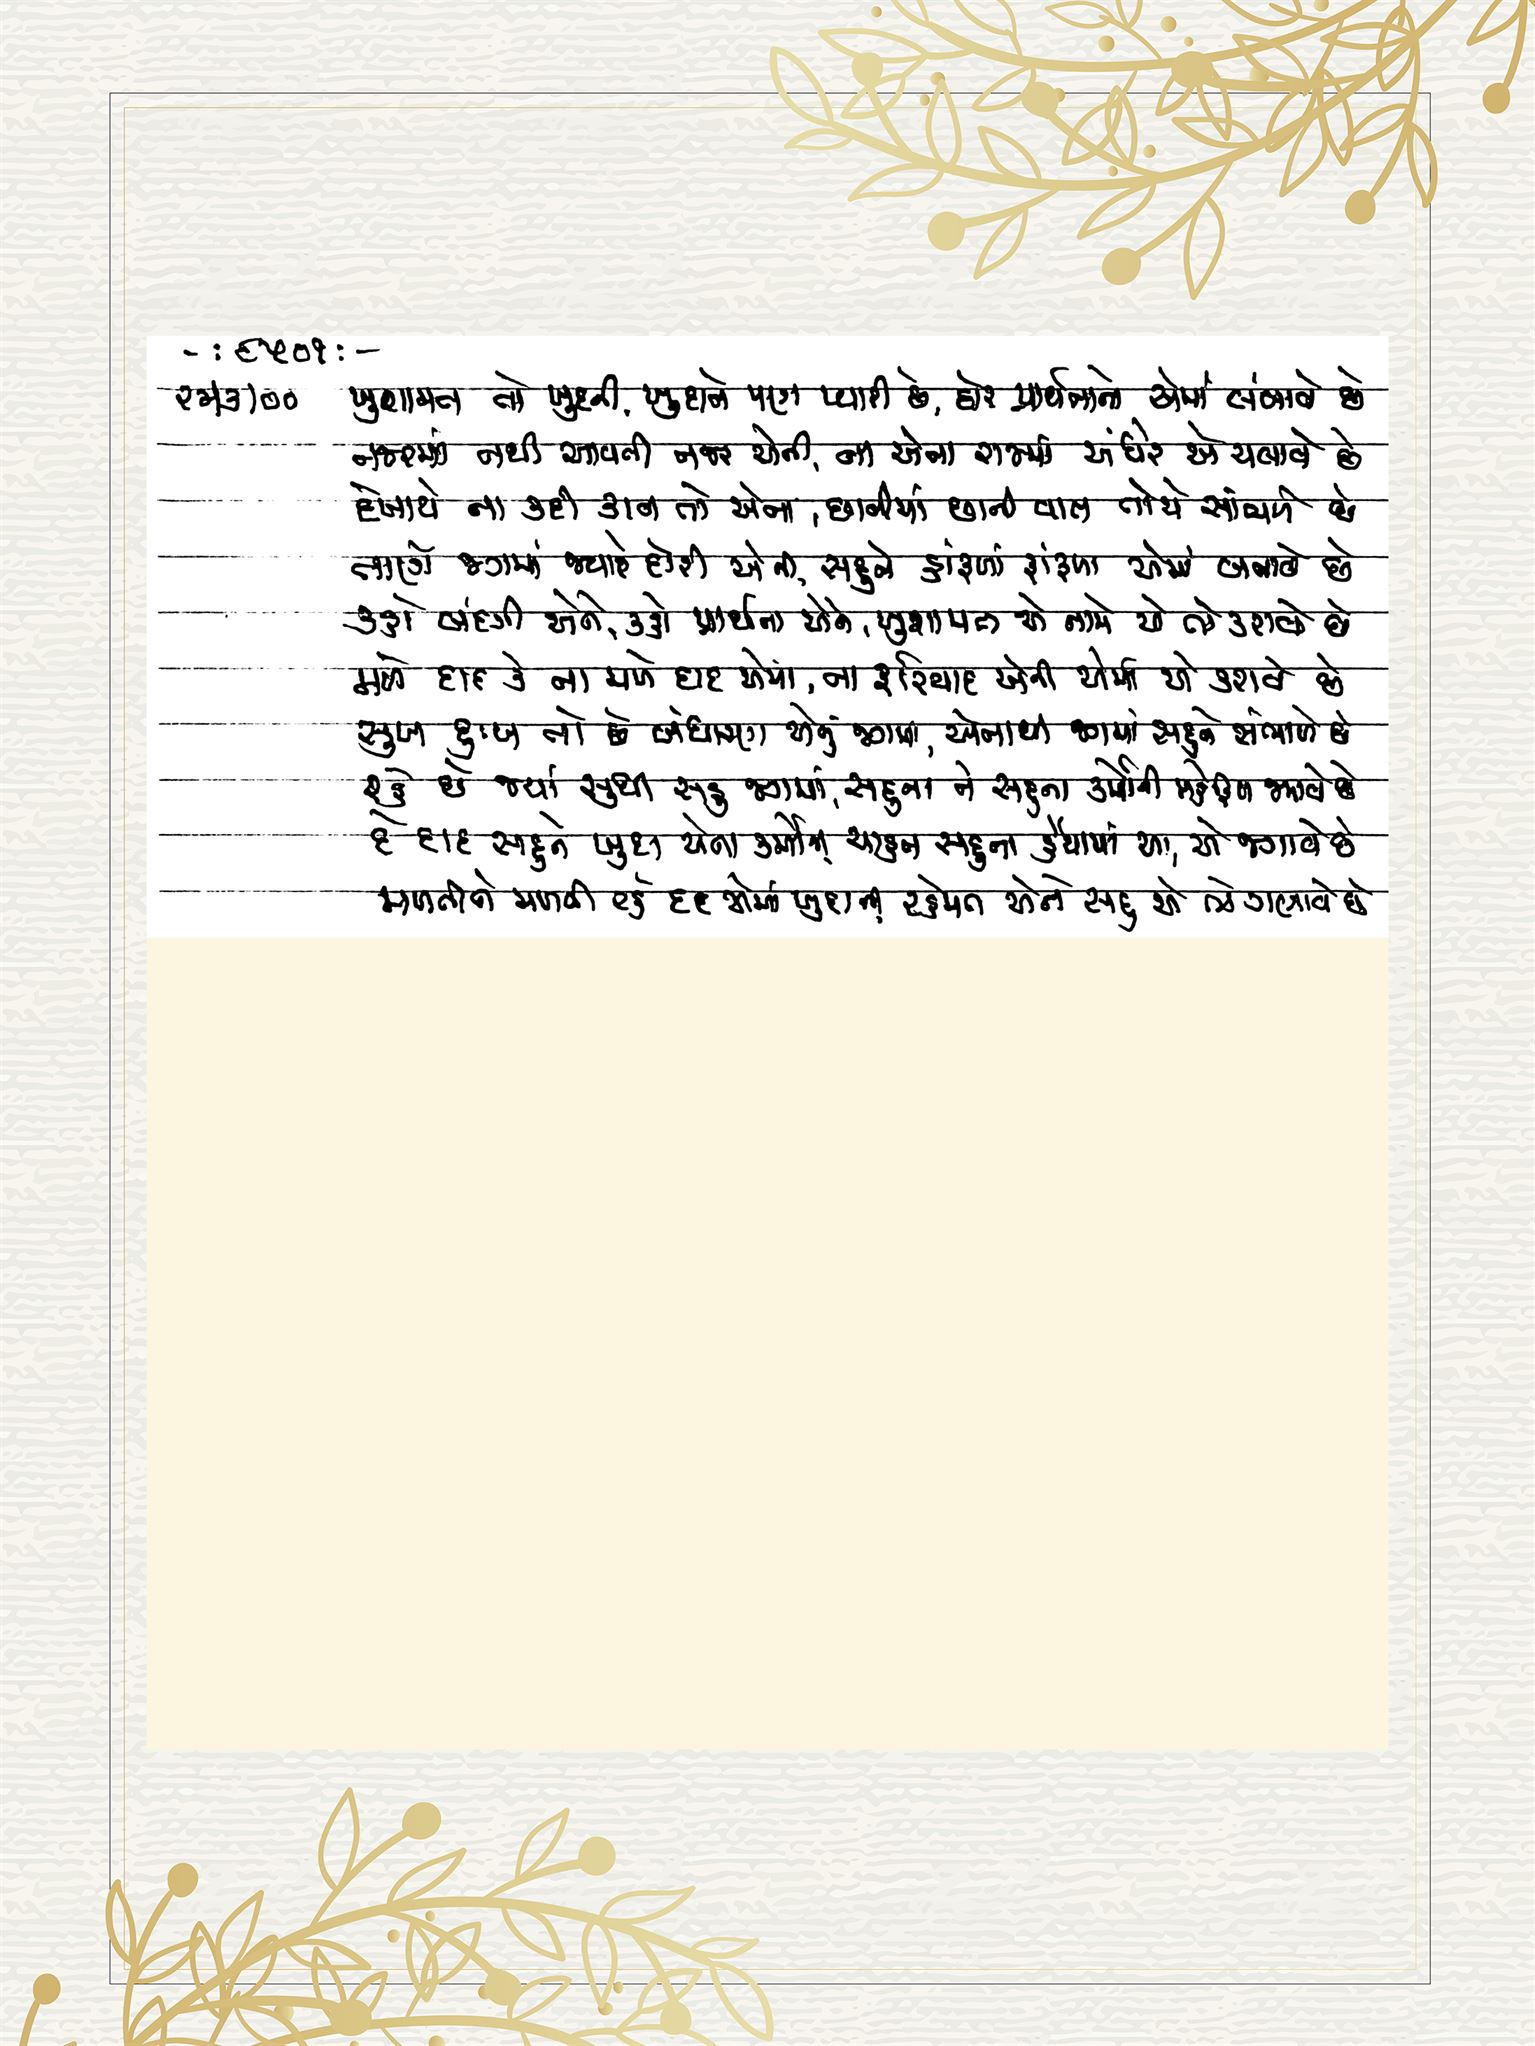 -: ૬૫૦૧ :-
ખુશામત તો ખુદની, ખુદાને પણ પ્યારી છે, દોર પ્રાર્થનાનો એમાં લંબાવે છે
નજરમાં નથી આવતી નજર એની, ના એના રાજમાં અંધેર એ ચલાવે છે
દેખાયે ના કદી કાન તો એના, છાનીમાં છાની વાત તોયે સાંભળે છે
તાણે જગમાં જ્યારે દોરી એની, સહુને ફાંફળાં ફાંફળા એમાં બનાવે છે
કહો બંદગી એને, કહો પ્રાર્થના એને, ખુશામત એ નામે એ તો કરાવે છે
મળે દાદ કે ના મળે દાદ એમાં, ના ફરિયાદ એની એમાં એ કરાવે છે
સુખ દુઃખ તો છે બંધારણ એનું જગમાં, એનાથી જગમાં સહુને સંભાળે છે
રહે છે જ્યાં સુધી સહુ જગમાં, સહુના ને સહુના કર્મોની જમાવે છે
દે દાદ સહુને ખુદા એના કર્મોની સહુના હૈયામાં આ, એ જગાવે છે
મળતીને મળતી રહે દાદ જેમાં ખુદાની, રહેમત એને સહુ એ તો ગણાવે છે